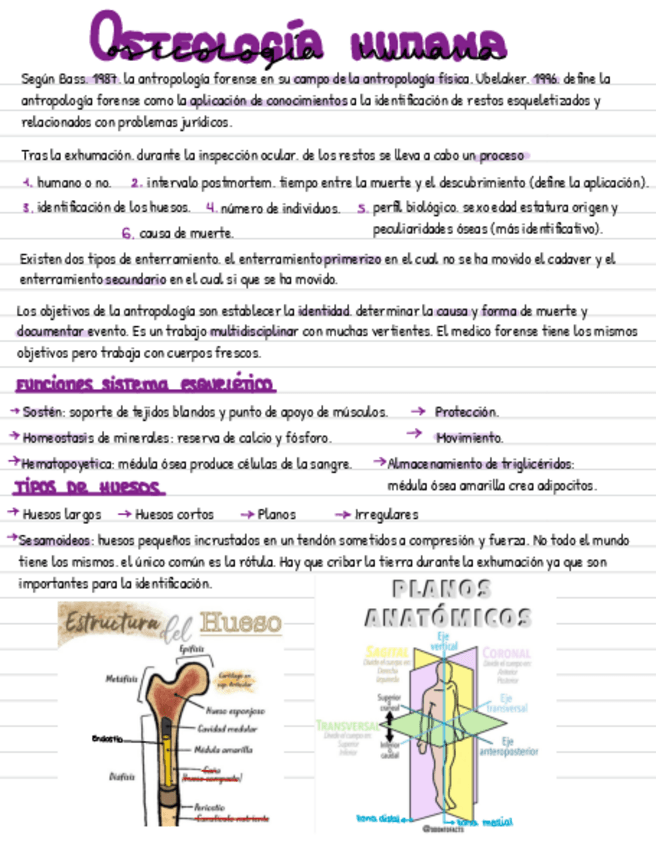 Osteología humana
Según Bass. 1987. la antropología forense en su campo de la antropología física. Ubelaker. 1996. define la
antropología forense como la aplicación de conocimientos a la identificación de restos esqueletizados y
relacionados con problemas jurídicos.
Tras la exhumación. durante la inspección ocular. de los restos se lleva a cabo un proceso
1. humano o no. 2. intervalo postmortem. tiempo entre la muerte y el descubrimiento (define la aplicación).
3. identificación de los huesos. 4. número de individuos. 5. perfil biológico. sexo edad estatura origen y
peculiaridades óseas (más identificativo).
6. causa de muerte.
Existen dos tipos de enterramiento. el enterramiento primerizo en el cual no se ha movido el cadaver y el
enterramiento secundario en el cual si que se ha movido.
Los objetivos de la antropología son establecer la identidad. determinar la causa y forma de muerte y
documentar evento. Es un trabajo multidisciplinar con muchas vertientes. El medico forense tiene los mismos
objetivos pero trabaja con cuerpos frescos.
Funciones sistema esquelético
→ Sostén: soporte de tejidos blandos y punto de apoyo de músculos. → Protección.
→ Homeostasis de minerales: reserva de calcio y fósforo. → Movimiento.
→ Hematopoyetica: médula ósea produce células de la sangre. → Almacenamiento de triglicéridos:
médula ósea amarilla crea adipocitos.
Tipos de huesos
→ Huesos largos → Huesos cortos → Planos → Irregulares
→ Sesamoideos: huesos pequeños incrustados en un tendón sometidos a compresión y fuerza. No todo el mundo
tiene los mismos. el único común es la rótula. Hay que cribar la tierra durante la exhumación ya que son
importantes para la identificación.
Estructura del Hueso
Epífisis
Metafisis
Cartílago
Articular
Hueso esponjoso
Cavidad medular
Endostio
Médula amarilla
Diáfisis
(Hueso compacto)
Periostio
PLANOS
ANATÓMICOS
Eje
vertical
SAGITAL
Divide el cuerpo en:
Derecha
Izquierda
CORONAL
Divide el cuerpo en:
Anterior
Posterior
Superior
o craneal
Eje
transversal
TRANSVERSAL
Divide el cuerpo en:
Superior
Inferior
Inferior
o caudal
Eje
anteroposterior
zona distal
zona medial